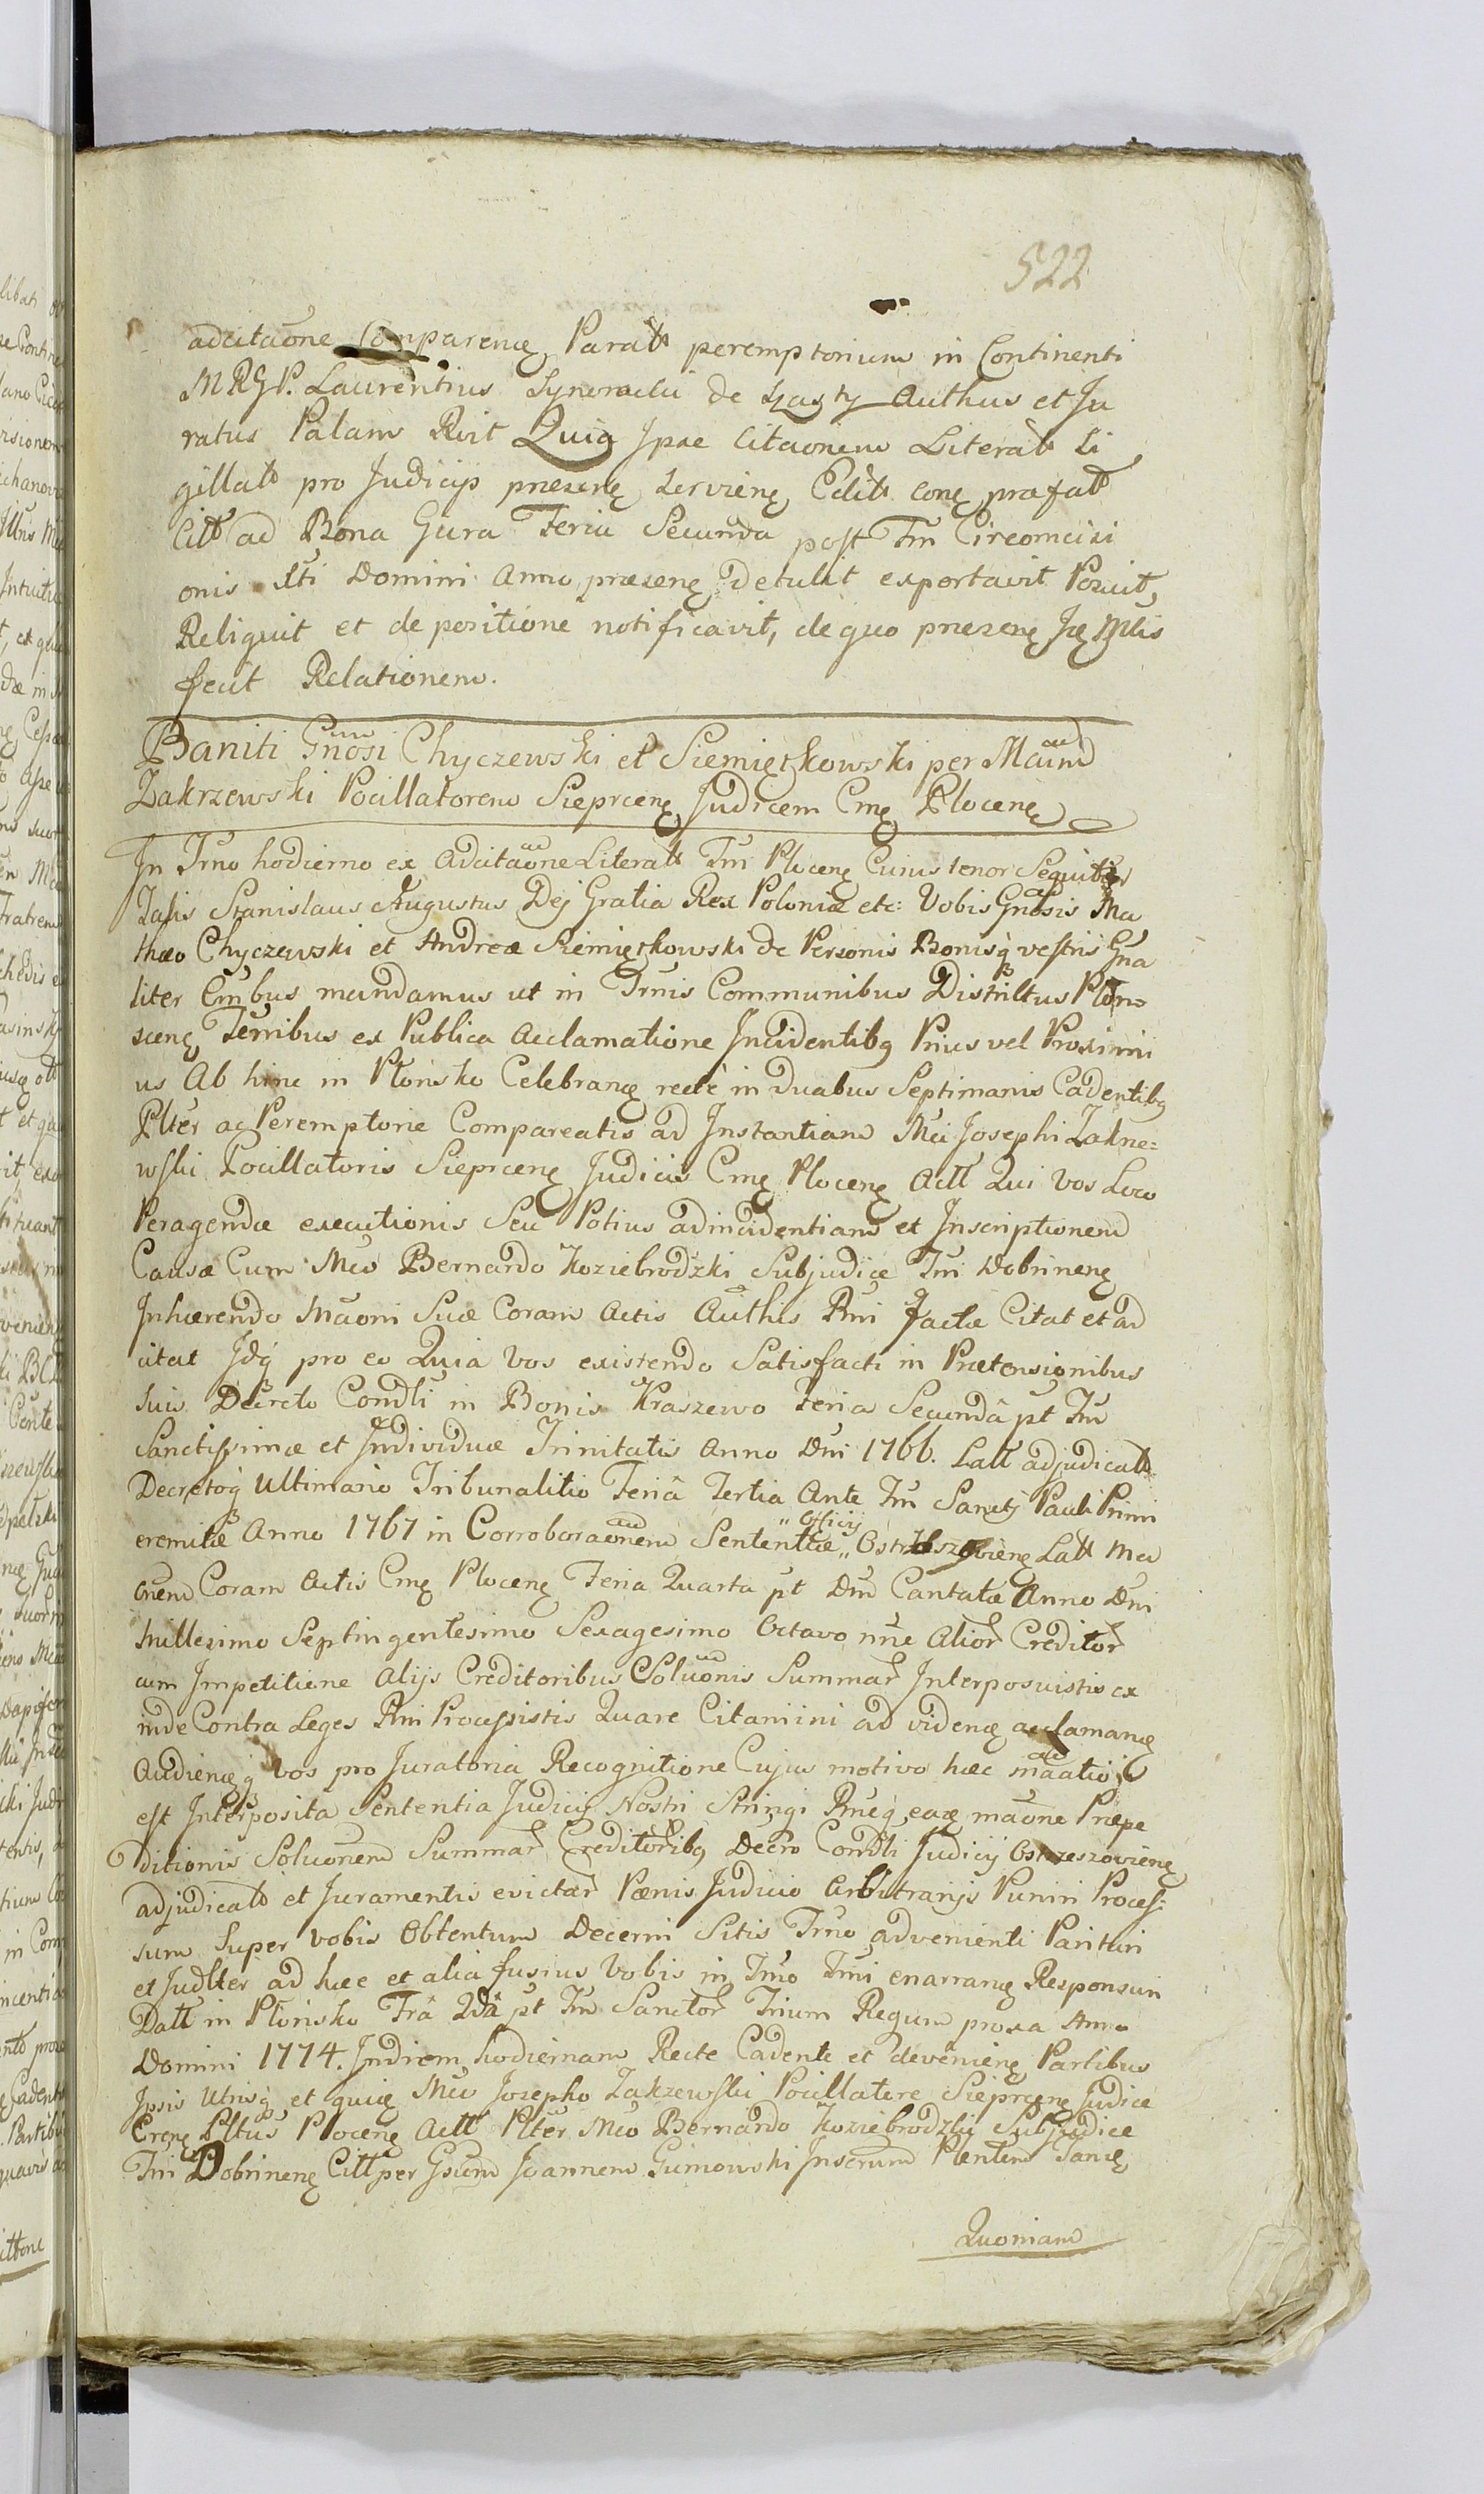 522
adcitaone Comparenę Paratt peremptorium in Continenti
MRGP. Laurentius de Authus et Ju
ratus Palam Rvit Quia Ipse Citaonem Literatt Si
gillatt pro Judicijs prezenę Servienę Edit conę prafatt
Citt ad Bona Gura Feria Secunda post Fm Circomcisi
onis Xti Domini Anno præzenę detulit exportavit Pozuit,
Reliquit et de positione notificavit, de quo prezenę Ję Mlis
fecit Relationem.
Baniti Gnosi Chyczewski et Siemiętkowski per Mcum
Zakrzewski Pocillatorem Sieprcenę Judicem Cmę Plocenę
In Trno hodierno ex Adcitaone Literatt Tm Plocenę Cuius tenor Sequitur
Talis Stanislaus Augustus Dej Gratia Rex Poloniæ etc: Vobis Gnosis Ma
thæo Chyczewski et Andreæ Siemiętkowski de Personis Bonisq vestris Gna
liter Embus mandamus ut in Trnis Communibus Districtus Plon-
scenę Terribus ex Publica Acclamatione Incidentibq Prius vel Proximi
us Ab hinc in Plońsko Celebranę recte in Duabus Septimanis Cadentibq
Plter ac Peremptorie Compareatis ad Instantiam Mci Josephi Zakrze=
wski Pocillatoris Sieprcenę Judicis Cmę Plocenę Actt Qui Vos Loco
Peragendæ executionis Seu Potius ad incidentiam et Inscriptionem
Causæ Cum Mco Bernardo Koziebrodzki Subjudice Tm Dobrinenę
Inhærendo Maoni Suæ Coram Actis Authis Rni factæ Citat et ad
citat Idq pro eo Quia Vos existendo Satisfacti in Prætensionibus
suis Decreto Condli in Bonis Kraszewo Feria Secunda pt Fm
Sanctissimæ et Individuæ Trinitatis Anno Dni 1766. Latt adjudicatt
Decretoq Ultimario Tribunalitio Feriâ Tertia Ante Fm Sancti Pauli Primi
eremitæ Anno 1767 in Corroboraonem Sententiæ „Officij„ Ostrzeszovienę Latt Ma
onem Coram Actis Cmę Plocenę Feria Quarta pt Dm Cantatæ Anno Dni
Millesimo Septingentesimo Sexagesimo Octavo nne Alior Creditor
cum Impetitione Alijs Creditoribus Soluonis Summar Interposuistis ex
inde Contra Leges Rni Processistis Quare Citamini ad videnę acclamanę
Audienęq vos pro Juratoria Recognitione Cujus motivo hæc maatio
est Interposita Sententia Judicij Nostri Stringi Rneq eaæ maone Præpe
ditionis Soluonem Summar Creditoribq Decro Condli Judicij Ostrzeszovienę
adjudicatt et Juramentis evictar Pænis Judicio Arbitrarijs Puniri Proces=
sum Super vobis Obtentum Decerni Sitis Trno advenienti Parituri
et Judlter ad hæc et alia fusius Vobis in Trno Tmi enarranę Responsuri
Datt in Plońsko Frâ 2dâ pt Fm Sanctor Trium Regum proxa Anno
Domini 1774. In diem hodiernam Recte Cadente et devenienę Partibus
Ipsis Utrisq et quię Mco Josepho Zakrzewski Pocillatore Sieprcenę Judice
Crenę Pltus Plocenę Actt Plter Mco Bernardo Koziebrodzki Subjudice
Tm Dobrinenę Citt per Gsum Joannem Gumowski Inscrum Plentem Tanę
Quoniam